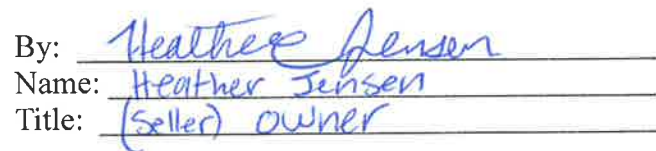 By: Heather Jensen
Name: Heather Jensen
Title: (Seller) owner